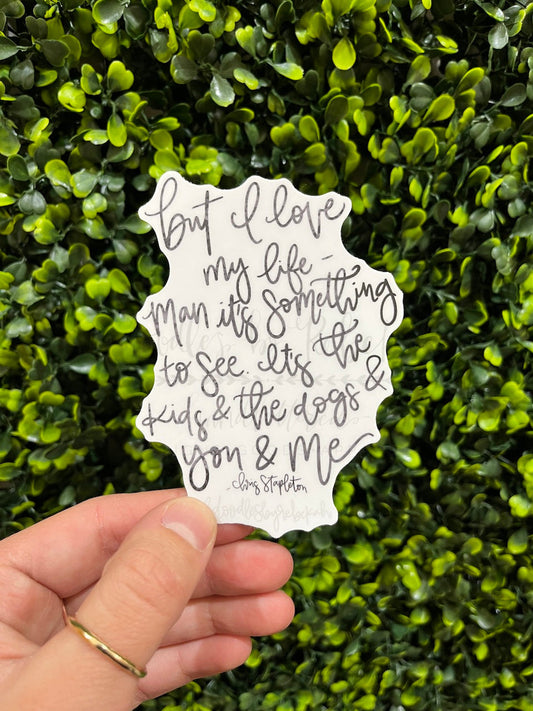 but I love
my life -
man it's something
to see. It's the
kids & the dogs &
you & me
- Chris Stapleton
@doodlesbyrebekah